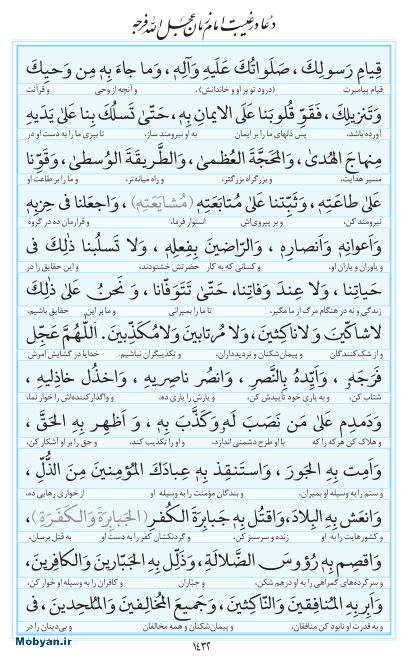 دعا در غیبت امام زمان عجل الله فرجه
قِيامِ رَسوُلِكَ ، صَلَواتُكَ عَلَيْهِ وَآلِهِ ، وَما جاءَ بِهِ مِن وَحيِكَ
قیام پیامبرت (درود تو بر او و خاندانش) ، و آنچه از وحی و قرآنت
وَتَنزيلِكَ ، فَقَوِّ قُلوُبَنا عَلَى الايمانِ بِهِ ، حَتّى تَسلُكَ بِنا عَلى يَدَيهِ
آورده باشد، پس دلهای ما را بر ایمان به او نیرومند ساز، تا ببری ما را به دست او در
مِنهاجَ الهُدىٰ ، وَالمَحَجَّةَ العُظمىٰ ، وَالطَّريقَةَ الوُسطىٰ ، وَقَوِّنا
مسیر هدایت، و بزرگراه بزرگتر، و راه میانه‌تر، و ما را بر طاعت او
عَلى طاعَتِهِ ، وَثَبِّتنا عَلى مُتابَعَتِهِ (مُشايَعَتِهِ) ، وَاجعَلنا فى حِزبِهِ
نیرومند کن، و بر پیروی‌اش استوار فرما، و قرارمان ده در گروه
وَاَعوانِهِ وَاَنصارِهِ ، وَالرّاضينَ بِفِعلِهِ ، وَلا تَسلُبنا ذلِكَ فى
و یاوران و یاران او، و کسانی که به کار حضرتش خشنودند، و این حقایق را در
حَياتِنا ، وَلا عِندَ وَفاتِنا، حَتّىٰ تَتَوَفّانا ، وَ نَحنُ عَلىٰ ذٰلِكَ
زندگی و نه در هنگام مرگ از ما مگیر، تا ما را بمیرانی و ما بر این حقایق باشیم،
لاشاكّينَ وَلاناكِثينَ، وَلا مُرتابينَ وَلامُكَذِّبينَ. اَللّٰهُمَّ عَجِّل
و از شک کنندگان و پیمان‌شکنان و تردیدداران، و تکذیبگران نباشیم. خدایا در گشایش امرش
فَرَجَهُ ، وَاَيِّدهُ بِالنَّصرِ ، وَانصُر ناصِريهِ ، وَاخذُل خاذِليهِ ،
شتاب کن، و به یاری خود تأییدش کن، و یارش را یاری ده، و واگذار کننده‌اش را خوار نما،
وَدَمدِم عَلىٰ مَن نَصَبَ لَهُ وَكَذَّبَ بِهِ ، وَ اَظهِر بِهِ الحَقَّ ،
و هلاک کن هرکه را که با او طرح دشمنی اندازد، و او را تکذیب کند، و حق را بر او آشکار کن،
وَاَمِت بِهِ الجَورَ ، وَاستَنقِذ بِهِ عِبادَكَ المُؤمِنينَ مِنَ الذُّلِّ ،
و ستم را به وسیله او بمیران، و بندگان مؤمنت را به وسیله او از خواری رهایی ده،
وَانعَش بِهِ البِلادَ، وَاقتُل بِهِ جَبابِرَةَ الكُفرِ (الجَبابِرَةَ وَالكَفَرَةَ) ،
و کشورهایت را به او زنده و سرسبز کن، و گردنکشان کفر را به دست او به قتل برسان،
وَاقصِم بِهِ رُؤُوسَ الضَّلالَةِ، وَذَلِّل بِهِ الجَبّارينَ وَالكافِرينَ،
و سرکرده‌های گمراهی را به او درهم شکن، و جبّاران و کافران را به وسیله او خوار کن،
وَاَبِر بِهِ المُنافِقينَ وَالنّاكِثينَ، وَجَميعَ المُخالِفينَ وَالمُلحِدينَ، فى
و به قدرت او نابود کن منافقان، و پیمان‌شکنان و همه مخالفان و بی‌دینان را در
۱۴۳۲
Mobyan.ir